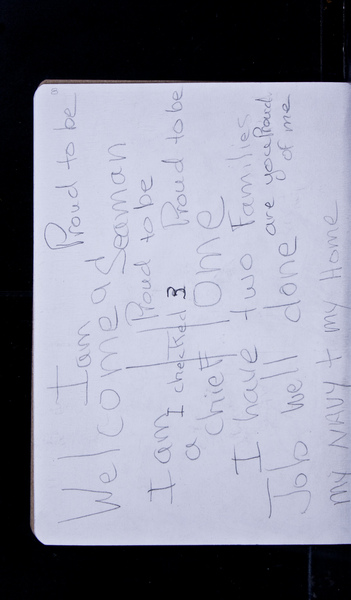 I am Proud to be
Welcome a Seaman
I am Proud to be
I checked 3 Proud to be
a chief ome
I have two Families
Job well done are you Proud
of me
my NAVY + my Home